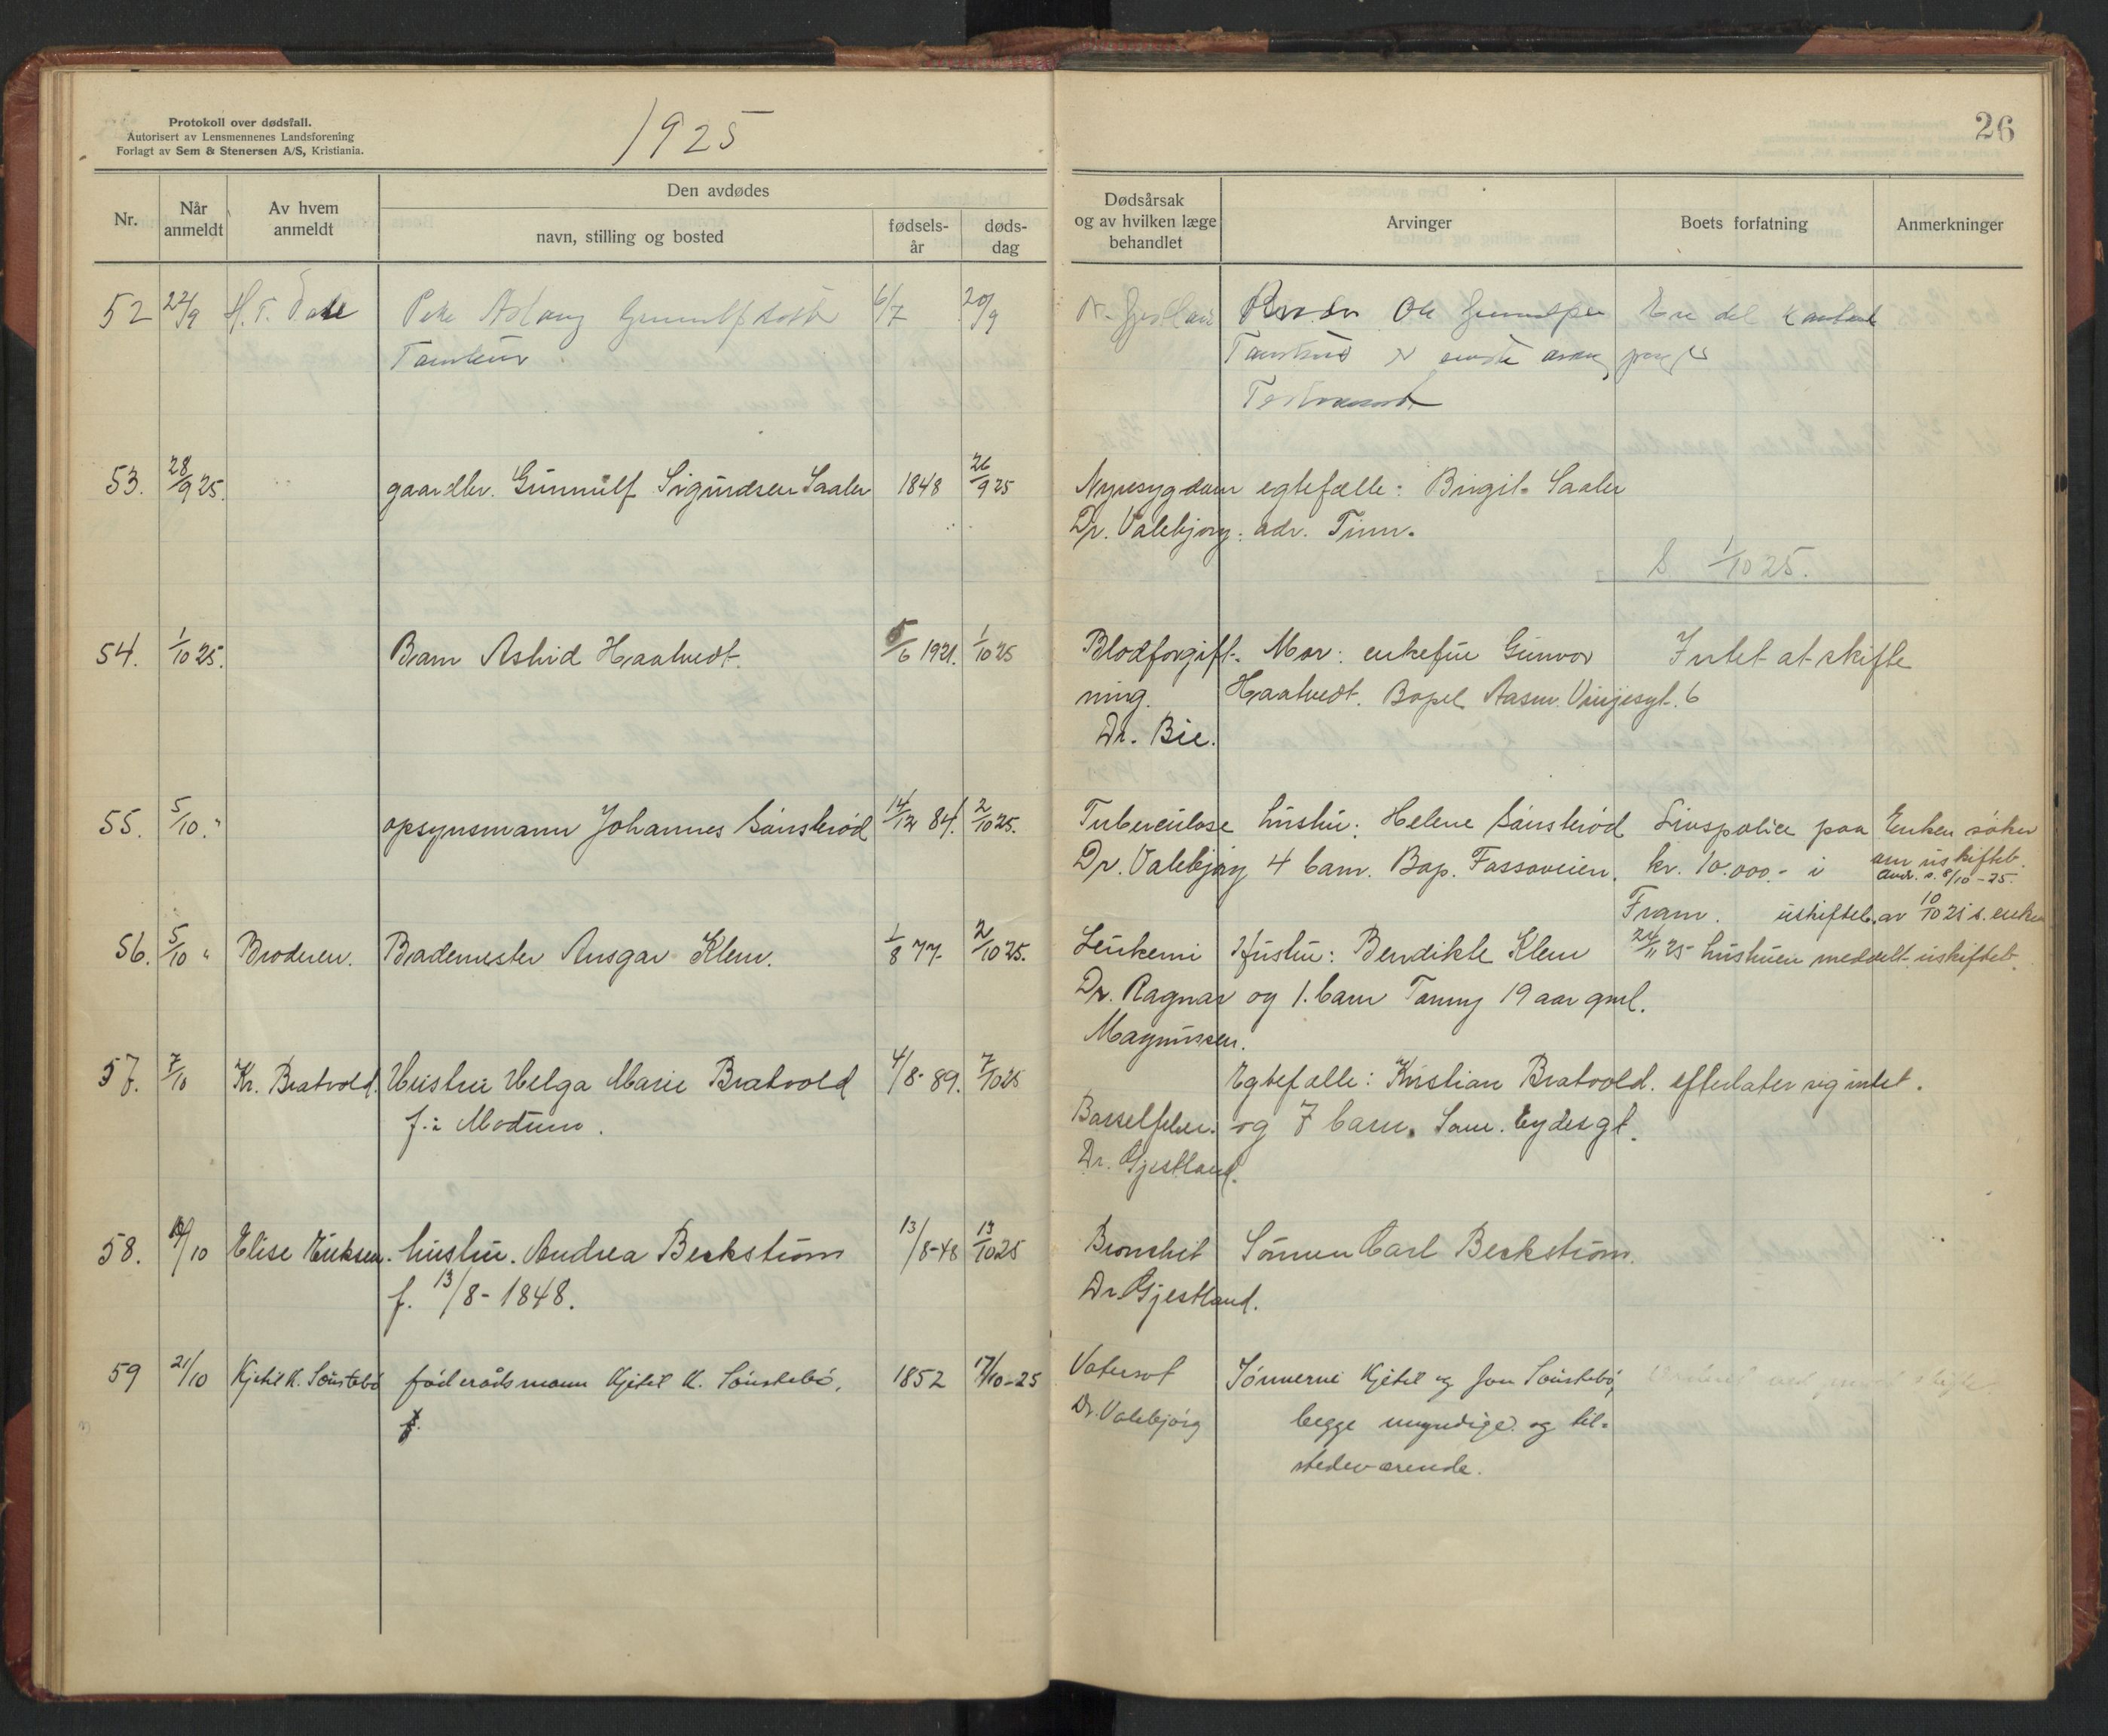 Protokoll over dødsfall.
Autorisert av Lensmennenes Landsforening
Forlagt av Sem & Stenersen A/S, Kristiania.
1925
26
Nr.
Når anmeldt
Av hvem anmeldt
Den avdødes
navn, stilling og bosted
fødsels-år
døds-dag
Dødsårsak og av hvilken læge behandlet
Arvinger
Boets forfatning
Anmerkninger
52 22/9 H. T. Dale Pike Aslaug 6/7 20/9 Broder Ole En del
53. 28/9 25. gaardbr. Gunnulf Sigurdsen Saaler 1848 26/9 25 Nyresygdom egtefælle: Birgit Saaler
Dr. Valebjørg. adr. Tinn.
S 1/10 25.
54. 1/10 25. Barn Astrid Haatvedt. 5/6 1921. 1/10 25 Blodforgift- Mor: enkefru Gunvor Intet at skifte
ning. Haatvedt. Bopel Aasm. Vinjesgt. 6
Dr. Bie.
55. 5/10. " opsynsmann Johannes Sånsterød 14/12 84. 2/10 25. Tuberculose hustru: Helene Sånsterød Livspolice paa Enken søker
Dr. Valebjørg 4 barn. Bop. Fossoveien. kr. 10.000.- i om uskifteb.
8/10-25.
Fram. uskifteb. av 10/10 25 s. enken
56. 5/10 " Broderen. Bademester Ansgar Klem. 1/8 77. 2/10 25. Leukemi Hustru: Bendikte Klem 24/11 25 hustruen meddelt uskifteb.
Dr. Ragnar og 1. barn 19 aar gml.
Magnussen.
57. 7/10 Kr. Bratvold. Hustru Helga Marie Bratvold 4/8-89. 7/10 25 Egtefælle: Kristian Bratvold. efterlater sig intet.
f. i Modum. Barselfeber. og 7 barn. Sam. Eydesgt.
Dr. Gjestland.
58. /10 Elise Eriksen. hustru. Andrea Beckstrøm 13/8-48 13/10 25 Bronchit Sønnen Carl Beckstrøm.
f. 13/8-1848. Dr. Gjestland.
59 21/10 Kjetil K. Sønstebø føderådsmann Kjetil K. Sønstebø, 1852 17/10-25 Vatersot Sønnerne Kjetil og Jon Sønstebø,
f. Dr. Valebjørg begge myndige og til-
stedeværende.